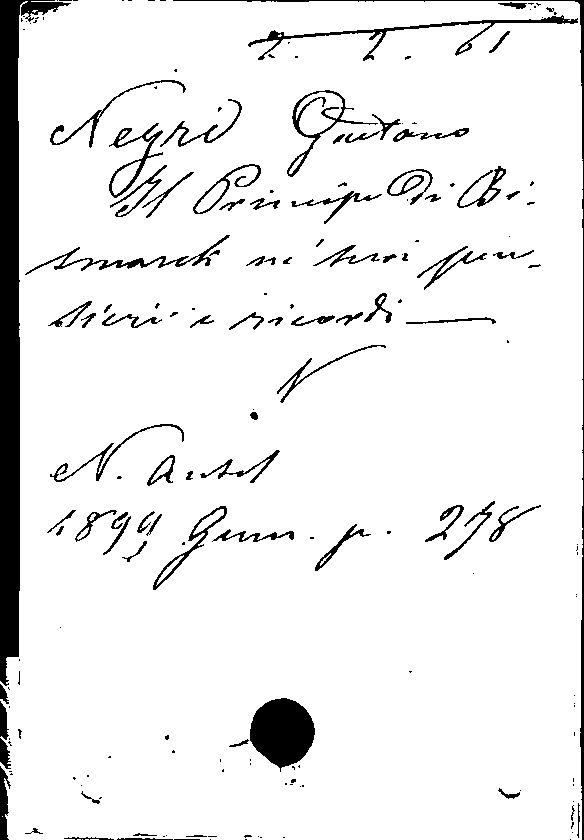 2. 2. 61
Negri Gaetano
Il Principe di Bi-
smarck ne' suoi pen-
sieri e ricordi —
N
N. Antol
1899 Genn. p. 278